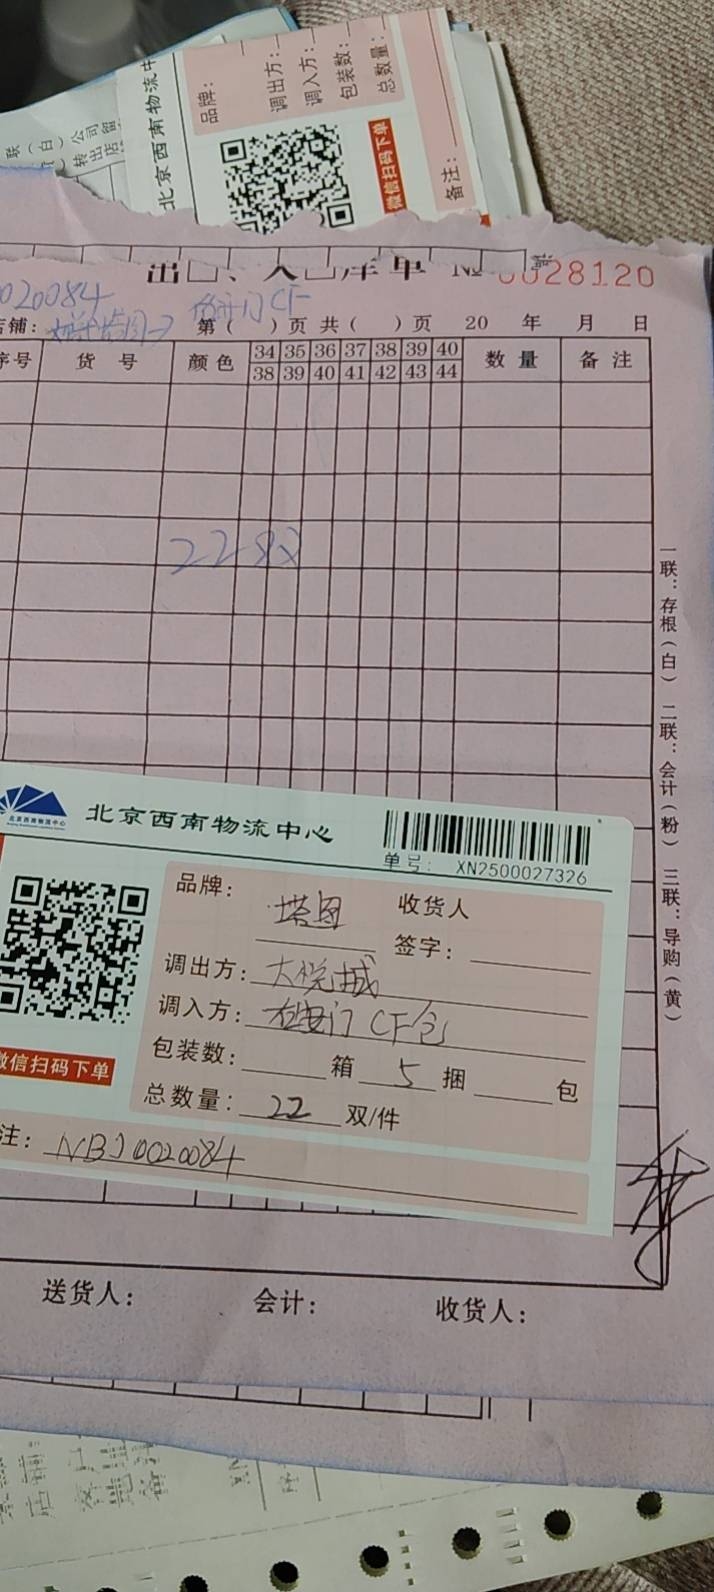 北京西南物流中
品牌:
调出方:
调入方:
包装数:
总数量:
微信扫码下单
备注:
联(白)公司留
转出店
出 入 库单 № 0028120
0020084
CF
店铺: 第( )页 共( )页 20 年 月 日
序号 货 号 颜色 34 35 36 37 38 39 40 数量 备注
38 39 40 41 42 43 44
22双
一联:存根(白) 二联:会计(粉) 三联:导购(黄)
北京西南物流中心
北京西南物流中心
单号: XN2500027326
品牌: 塔图 收货人
签字:
调出方: 大悦城
调入方: 门 CF仓
包装数: 箱 5 捆 包
总数量: 22 双/件
微信扫码下单
注: NBJ0020084
送货人: 会计: 收货人: